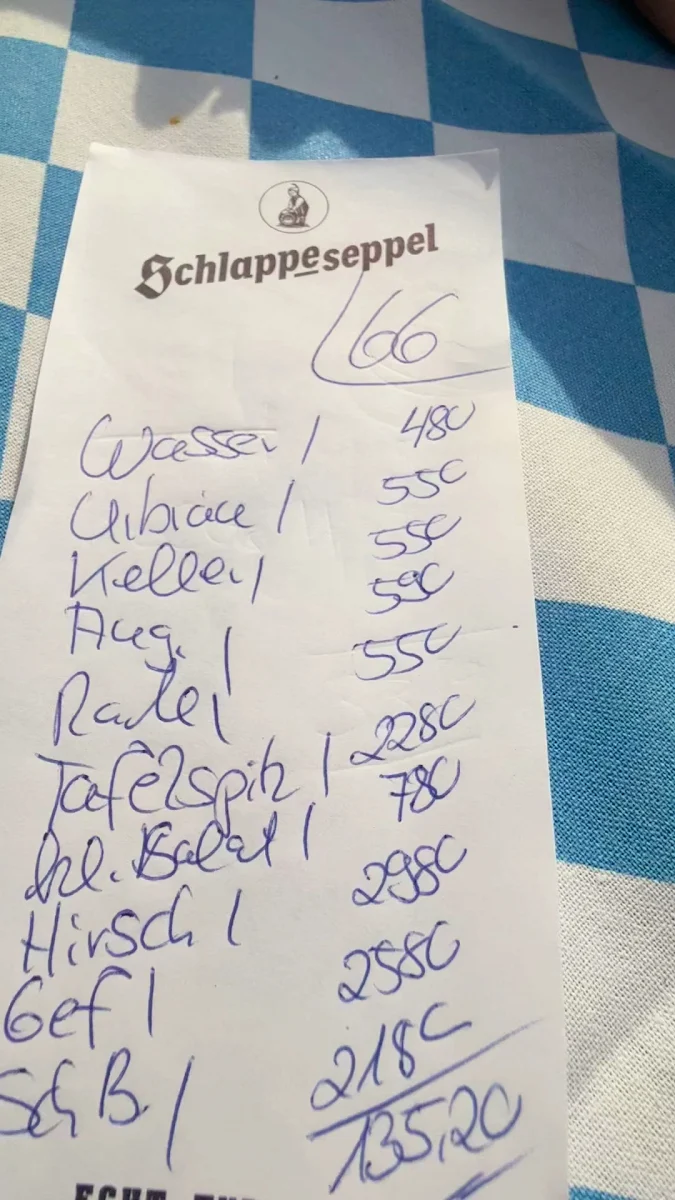 Schlappeseppel
66
Wasser / 480
/ 550
Keller / 550
Aug. / 590
Radler 550
Tafelspitz / 2280
kl. Salat / 780
Hirsch / 2980
Gef / 2580
Sch B / 2180
135,20